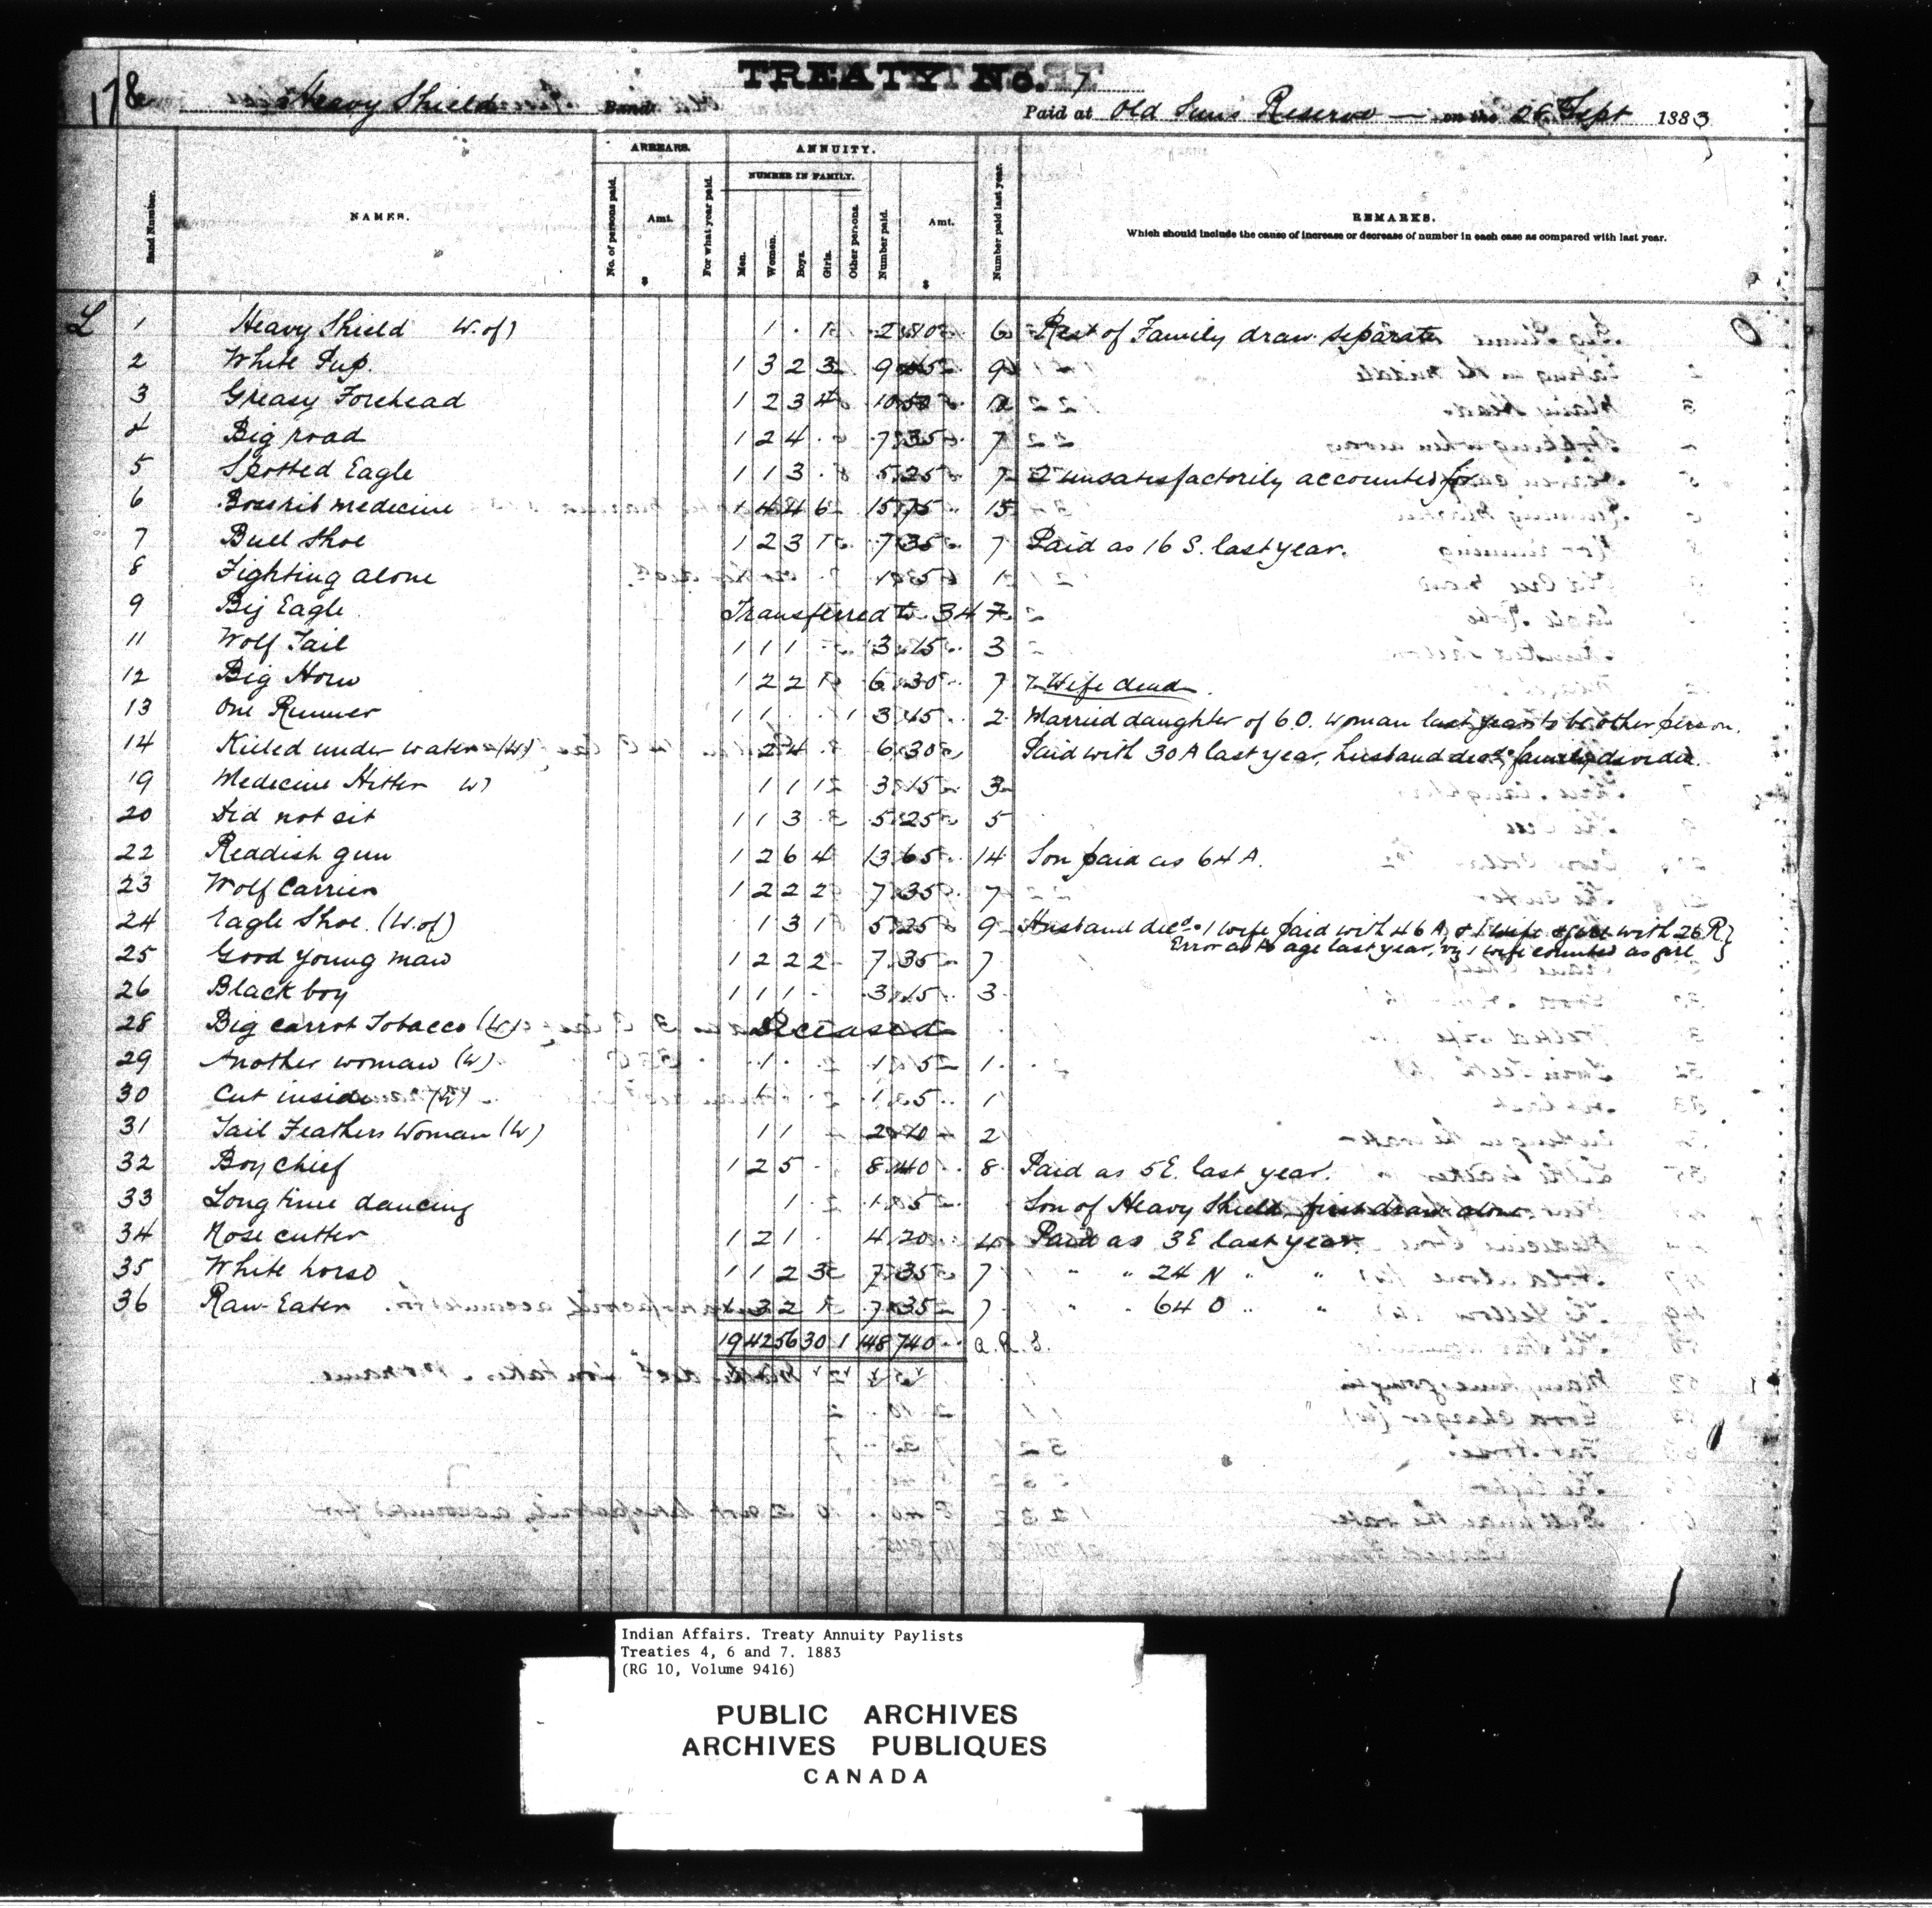 TREATY No. 7
178
Heavy Shield Band
Paid at Old Suns Reserve — on the Sept 1883
Band Number. NAMES. ARREARS. No. of persons paid. Amt. $ For what year paid. ANNUITY. NUMBER IN FAMILY. Men. Women. Boys. Girls. Other persons. Number paid. Amt. $ Number paid last year. REMARKS.
Which should include the cause of increase or decrease of number in each case as compared with last year.
L 1 Heavy Shield W. of) 1 . 1 2 10 6 Rest of Family draw separate
2 White Pup. 1 3 2 3 9 45 9
3 Greasy Forehead 1 2 3 4 10 50
4 Big road 1 2 4 . 7 35 7
5 Spotted Eagle 1 1 3 . 5 25 7 2 unsatisfactorily accounted for
6 medicine 1 4 4 6 15 75 15
7 Bull Shoe 1 2 3 1 7 35 7 Paid as 16 S. last year.
8 Fighting alone 1 5 1
9 Big Eagle Transferred to 34 7
11 Wolf Tail 1 1 1 3 15 3
12 Big Horn 1 2 2 1 6 30 7 Wife dead.
13 One Runner 1 1 . . 1 3 15 2 Married daughter of 6.O. woman last year to be other person.
14 Killed under water (W) 2 4 6 30 Paid with 30 A last year, husband decd, family divided.
19 Medicine Hitter W) 1 1 1 3 15 3
20 Did not sit 1 1 3 . 5 25 5
22 Reddish gun 1 2 6 4 13 65 14 Son paid as 64 A.
23 Wolf Carrier 1 2 2 2 7 35 7
24 Eagle Shoe. (W. of) 1 3 1 5 25 9 Husband decd. 1 wife paid with 46 A, & 1 wife with 26 R}
Error as to age last year, viz 1 wife counted as girl }
25 Good young man 1 2 2 2 7 35 7
26 Black boy 1 1 1 . 3 15 3
28 Big carrot Tobacco (W) Deceased
29 Another woman (W) 1 . 1 5 1
30 Cut inside (W) 1 . 1 5 1
31 Tail Feathers Woman (W) 1 1 2 10 2
32 Boy chief 1 2 5 . 8 40 8 Paid as 5 E. last year.
33 Long time dancing 1 1 5 Son of Heavy Shield, first draw alone.
34 Nose cutter 1 2 1 . 4 20 4 Paid as 3 E last year.
35 White horse 1 1 2 3 7 35 7 " " 24 N " "
36 Raw Eater 1 3 2 1 7 35 7 " " 64 O " "
19 42 56 30 1 148 740 a. R. S.
Indian Affairs. Treaty Annuity Paylists
Treaties 4, 6 and 7. 1883
(RG 10, Volume 9416)
PUBLIC ARCHIVES
ARCHIVES PUBLIQUES
CANADA